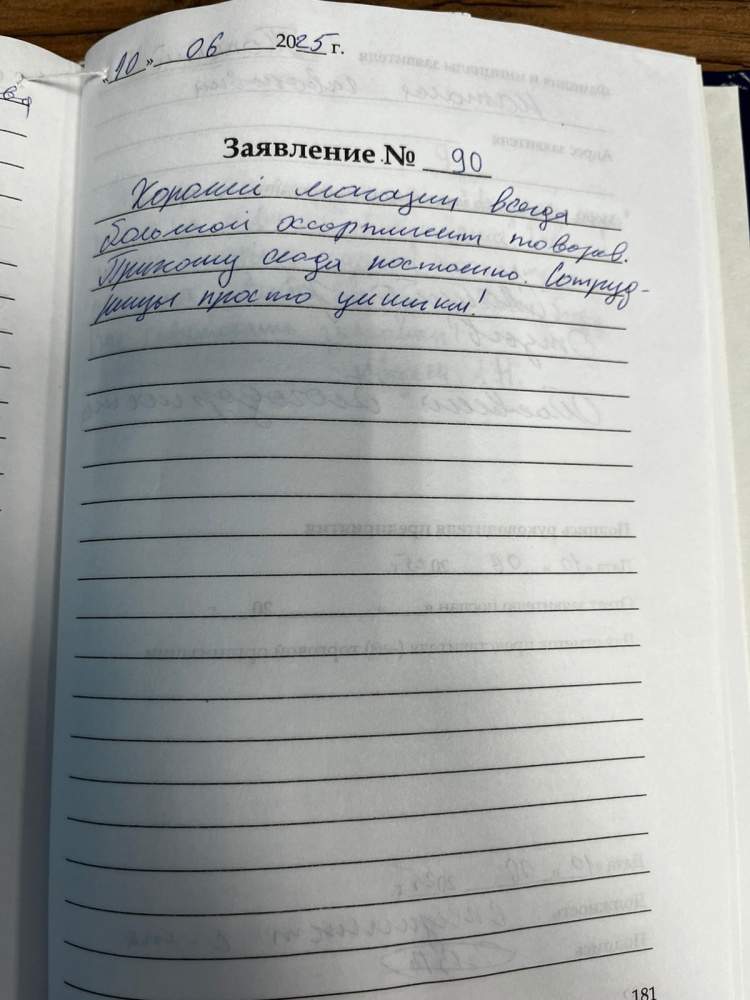 «10» 06 2025 г.
Заявление № 90
Хороший магазин всегда
большой ассортимент товаров.
Прихожу сюда постоянно. Сотруд-
ницы просто умнички!
181